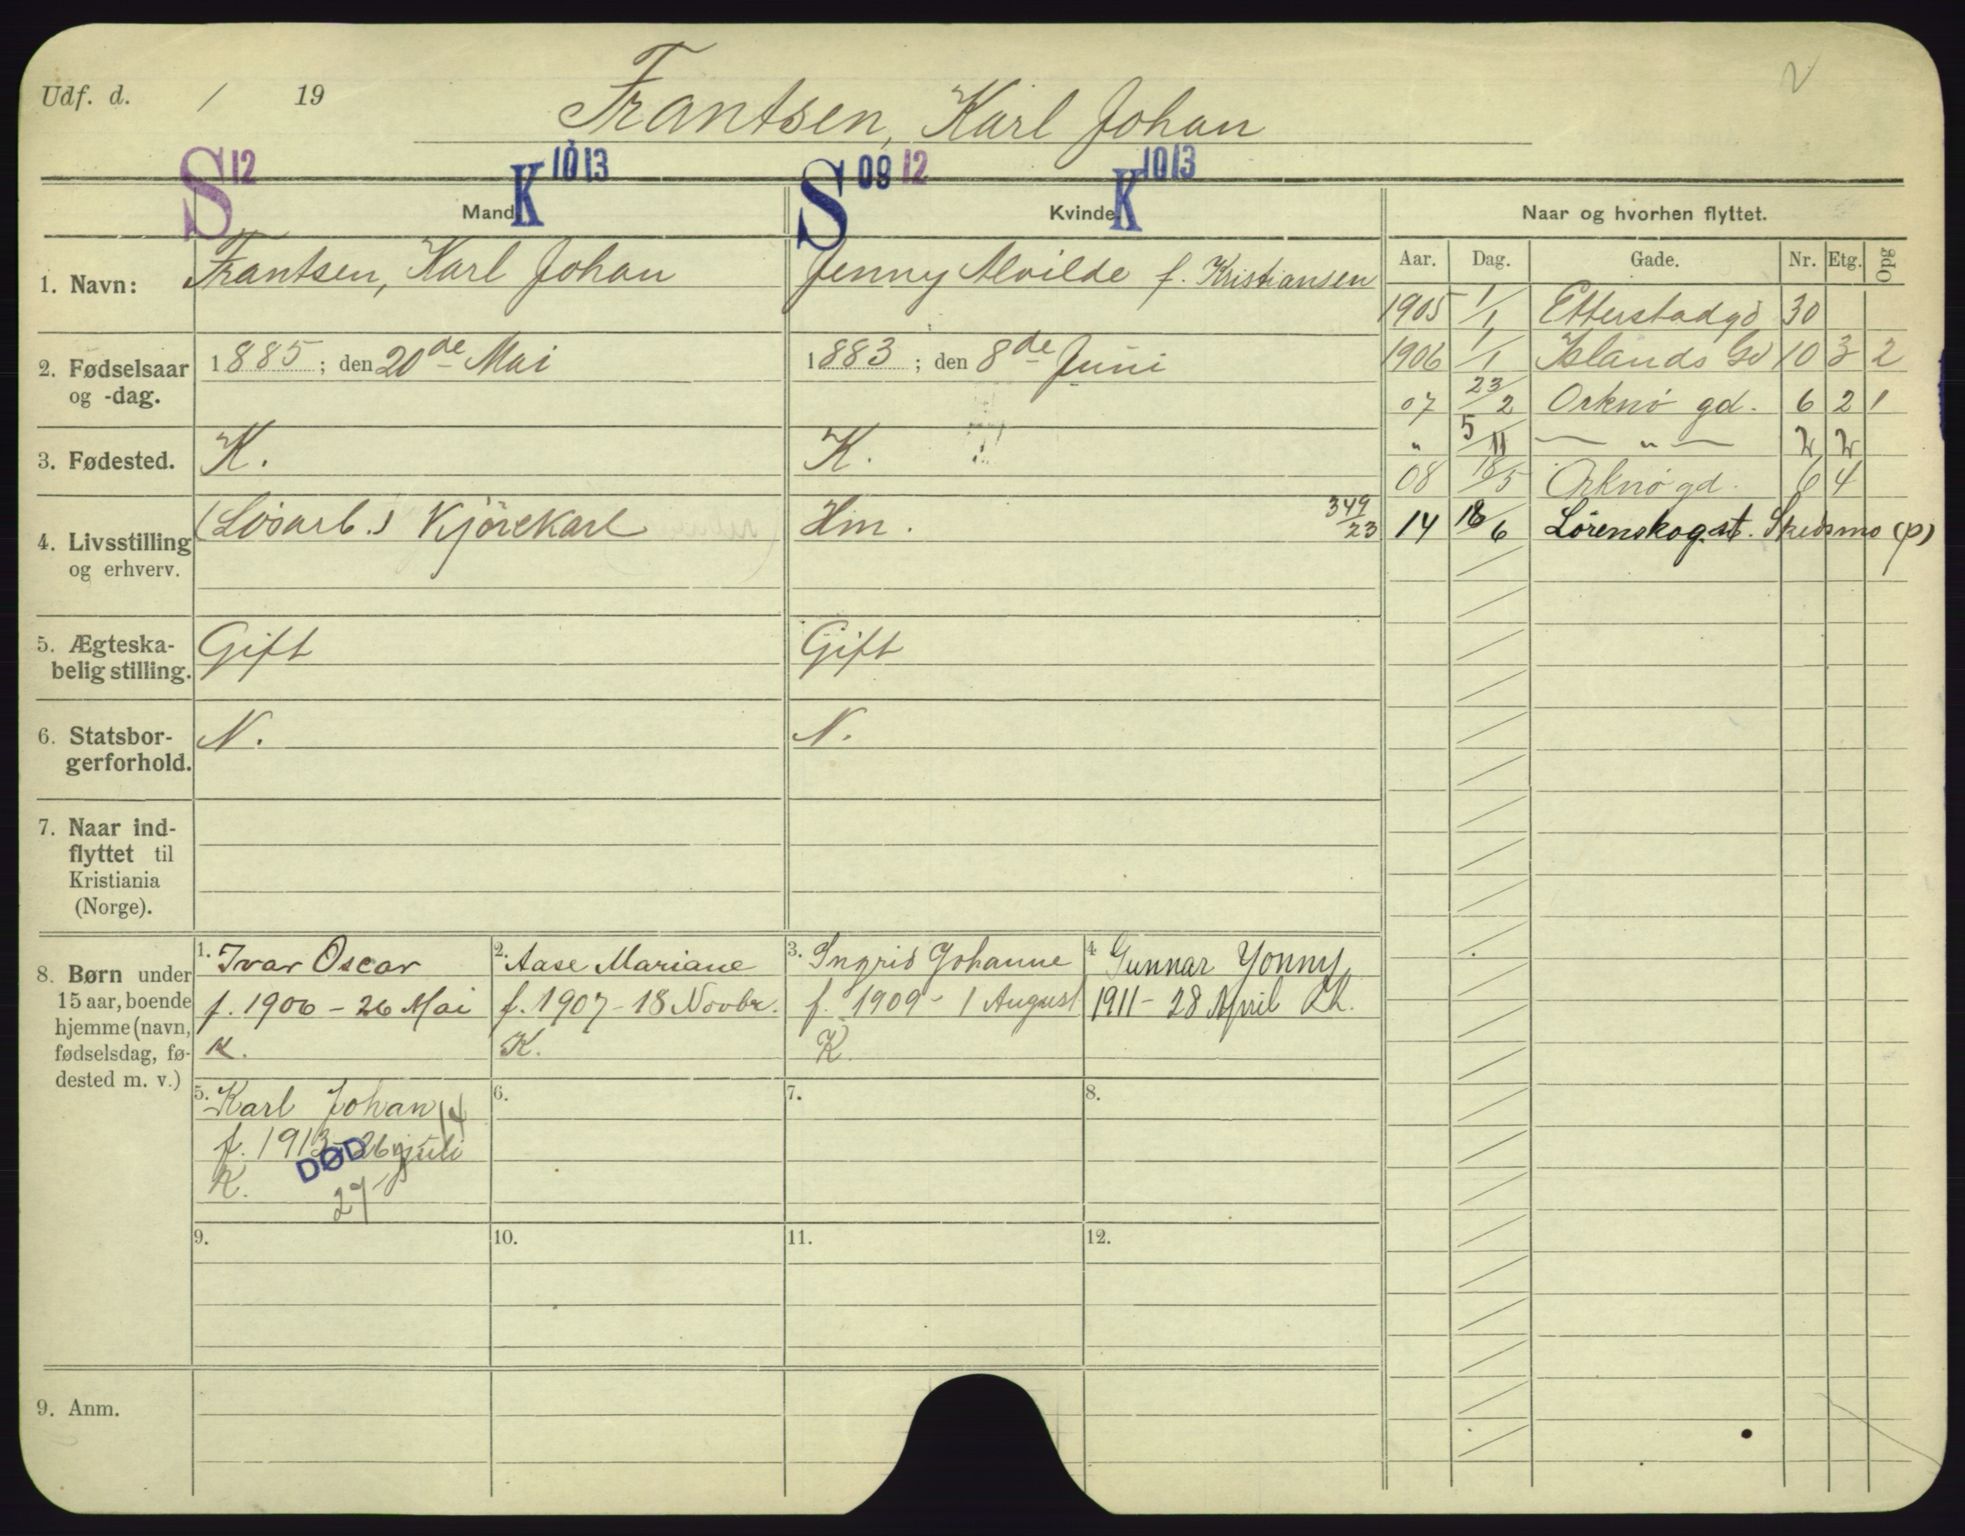 Udf. d. / 19
Frantsen, Karl Johan
S 12 K 10 13 S 08 12 K 10 13
Mand Kvinde Naar og hvorhen flyttet.
Aar. Dag. Gade. Nr. Etg. Opg
1. Navn: Frantsen, Karl Johan
Jenny Alvilde f. Kristiansen
1905 1/1 Etterstadgd 30
2. Fødselsaar og -dag.
1885; den 20de Mai
1883; den 8de Juni
1906 1/1 Islands Gd 10 3 2
07 23/2 Orknø gd. 6 2 1
3. Fødested. K.
K.
" 5/11 — " — 2 2
08 18/5 Orknø gd. 6 4
4. Livsstilling og erhverv.
(Løsarb.) Kjørekarl
Hm. 349/23
14 18/6 Lørenskog st. Skedsmo (p)
5. Ægteska-
belig stilling.
Gift
Gift
6. Statsbor-
gerforhold.
N.
N.
7. Naar ind-
flyttet til
Kristiania
(Norge).
8. Børn under
15 aar, boende
hjemme (navn,
fødselsdag, fø-
dested m. v.)
1. Ivar Oscar
f. 1906 - 26 Mai
K.
2. Aase Mariane
f. 1907 - 18 Novbr.
K.
3. Ingrid Johanne
f. 1909 - 1 August
K.
4 Gunnar Yonny
1911 - 28 April Kh.
5. Karl Johan
f. 1913 - 26 juli
K.
DØD
14
27
6.
7.
8.
9.
10.
11.
12.
9. Anm.